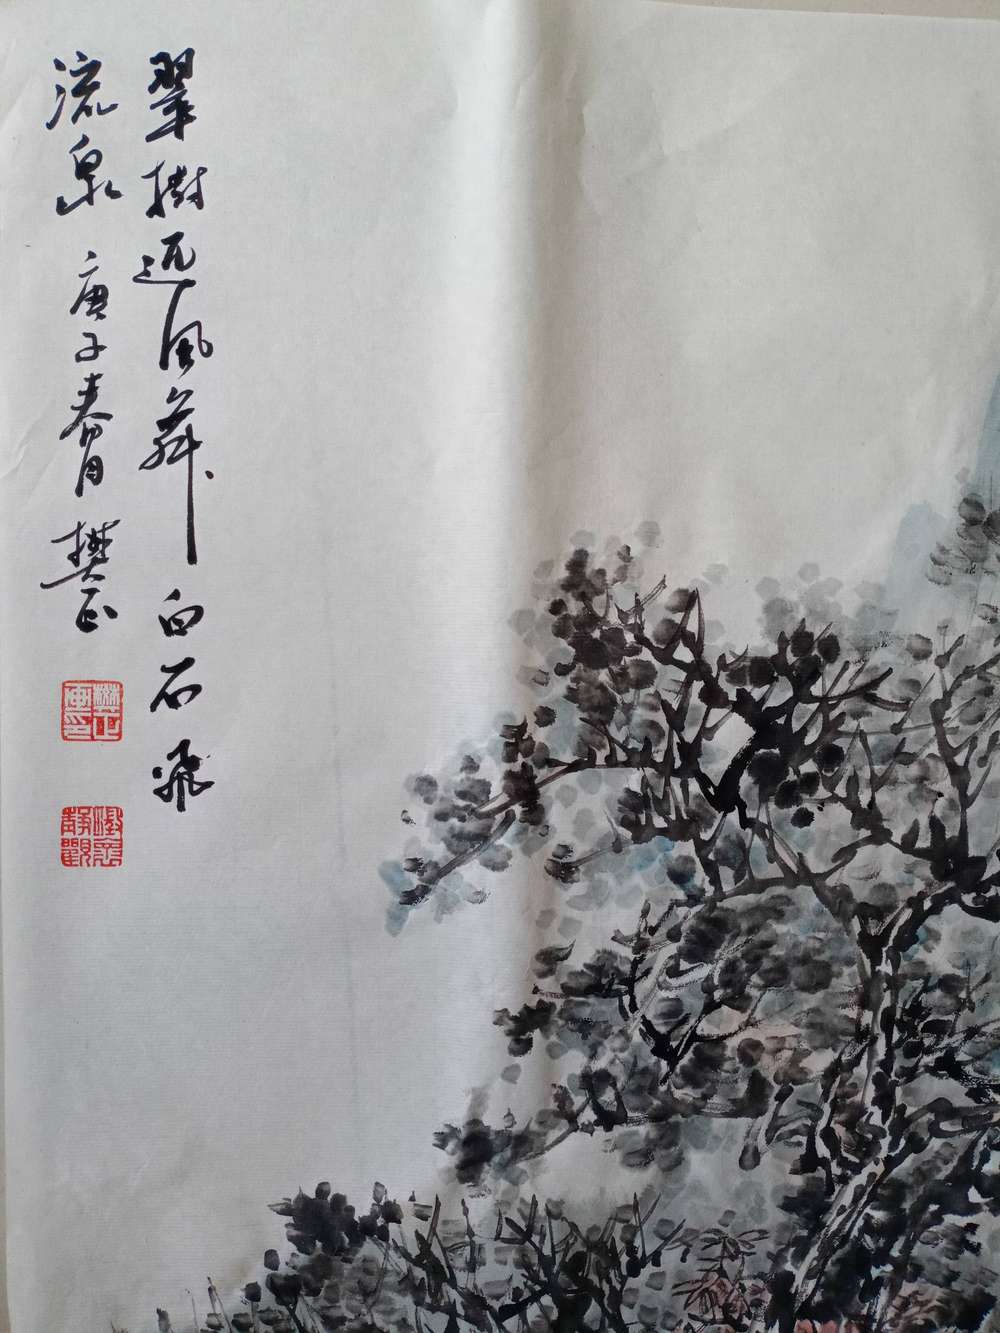 翠樹迎風舞白石飛
流泉 庚子春月 樊正